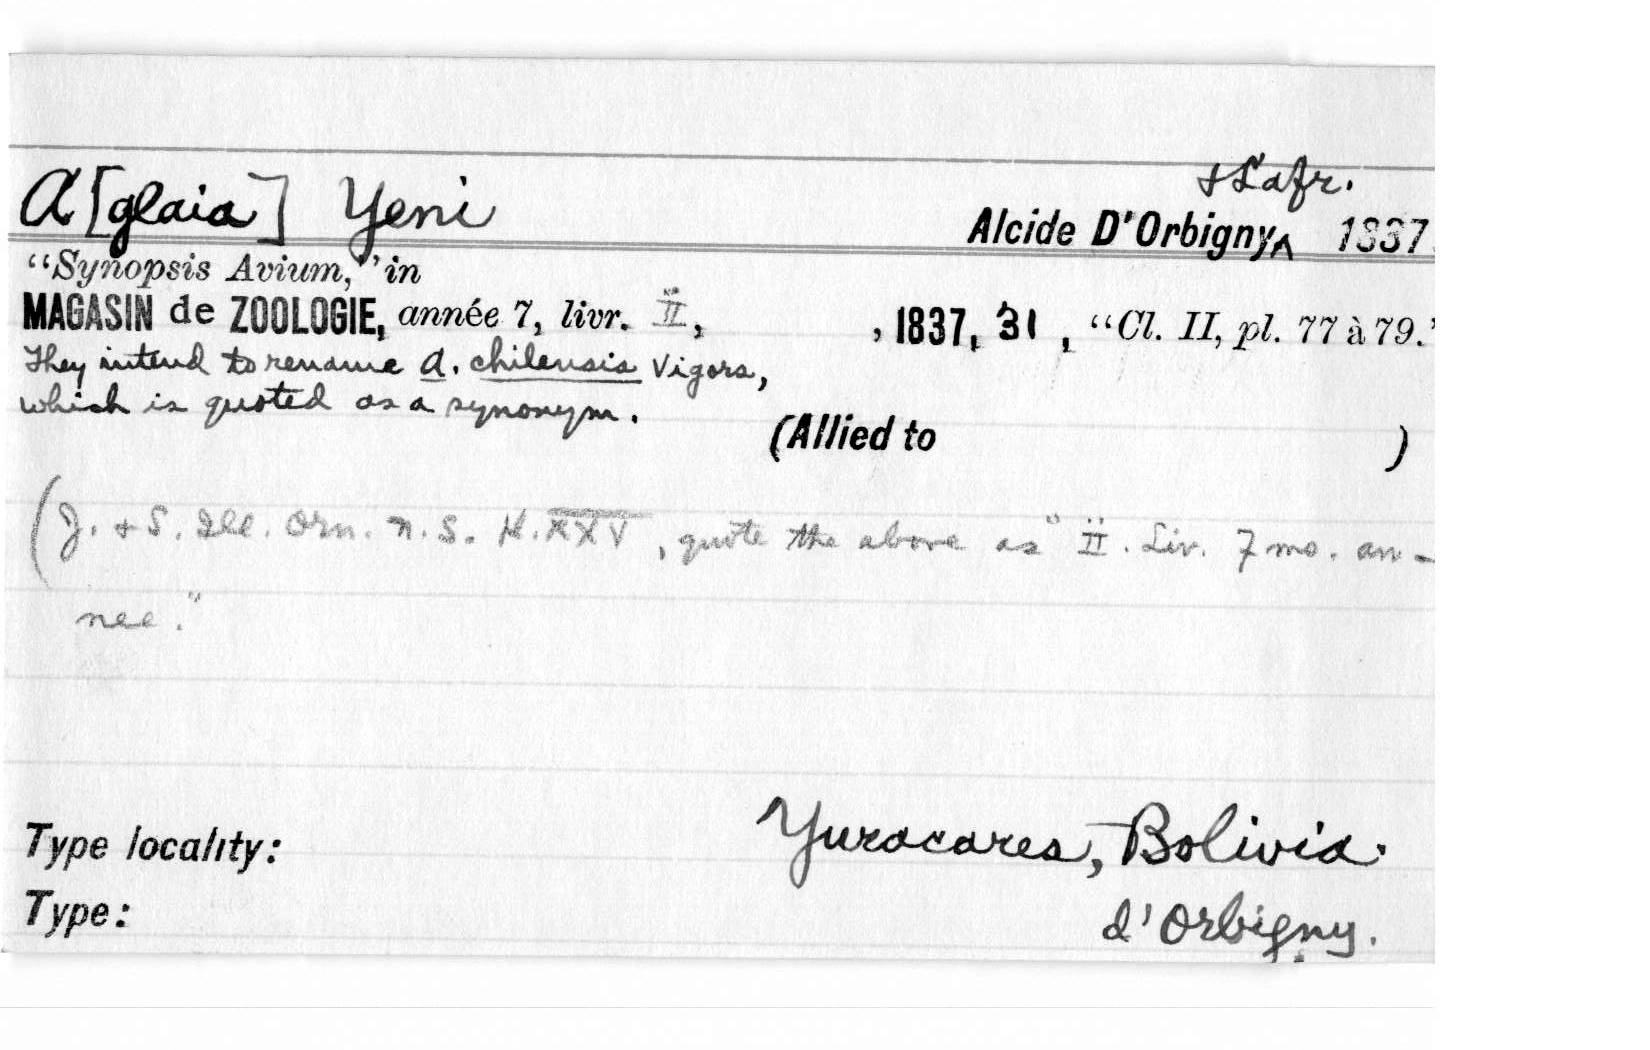 A[glaia] Yeni
& Lafr.
Alcide D'Orbigny ^ 1837.
"Synopsis Avium," in
MAGASIN de ZOOLOGIE, année 7, livr. II, , 1837, 31 , "Cl. II, pl. 77 à 79."
They intend to rename A. chilensis Vigors,
which is quoted as a synonym.
(Allied to )
(J. + S. Ill. Orn. n.s. Pl. XXXV, quote the above as "II. Liv. 7 mo. an-
nee."
Type locality: Yuracares, Bolivia.
Type: d'Orbigny.